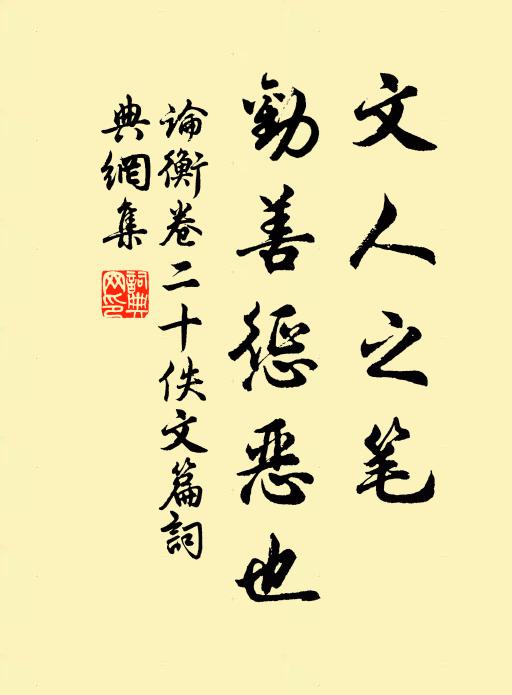 文人之笔
勸善惩恶也
論衡卷二十佚文篇詞
典網集
詞典网印